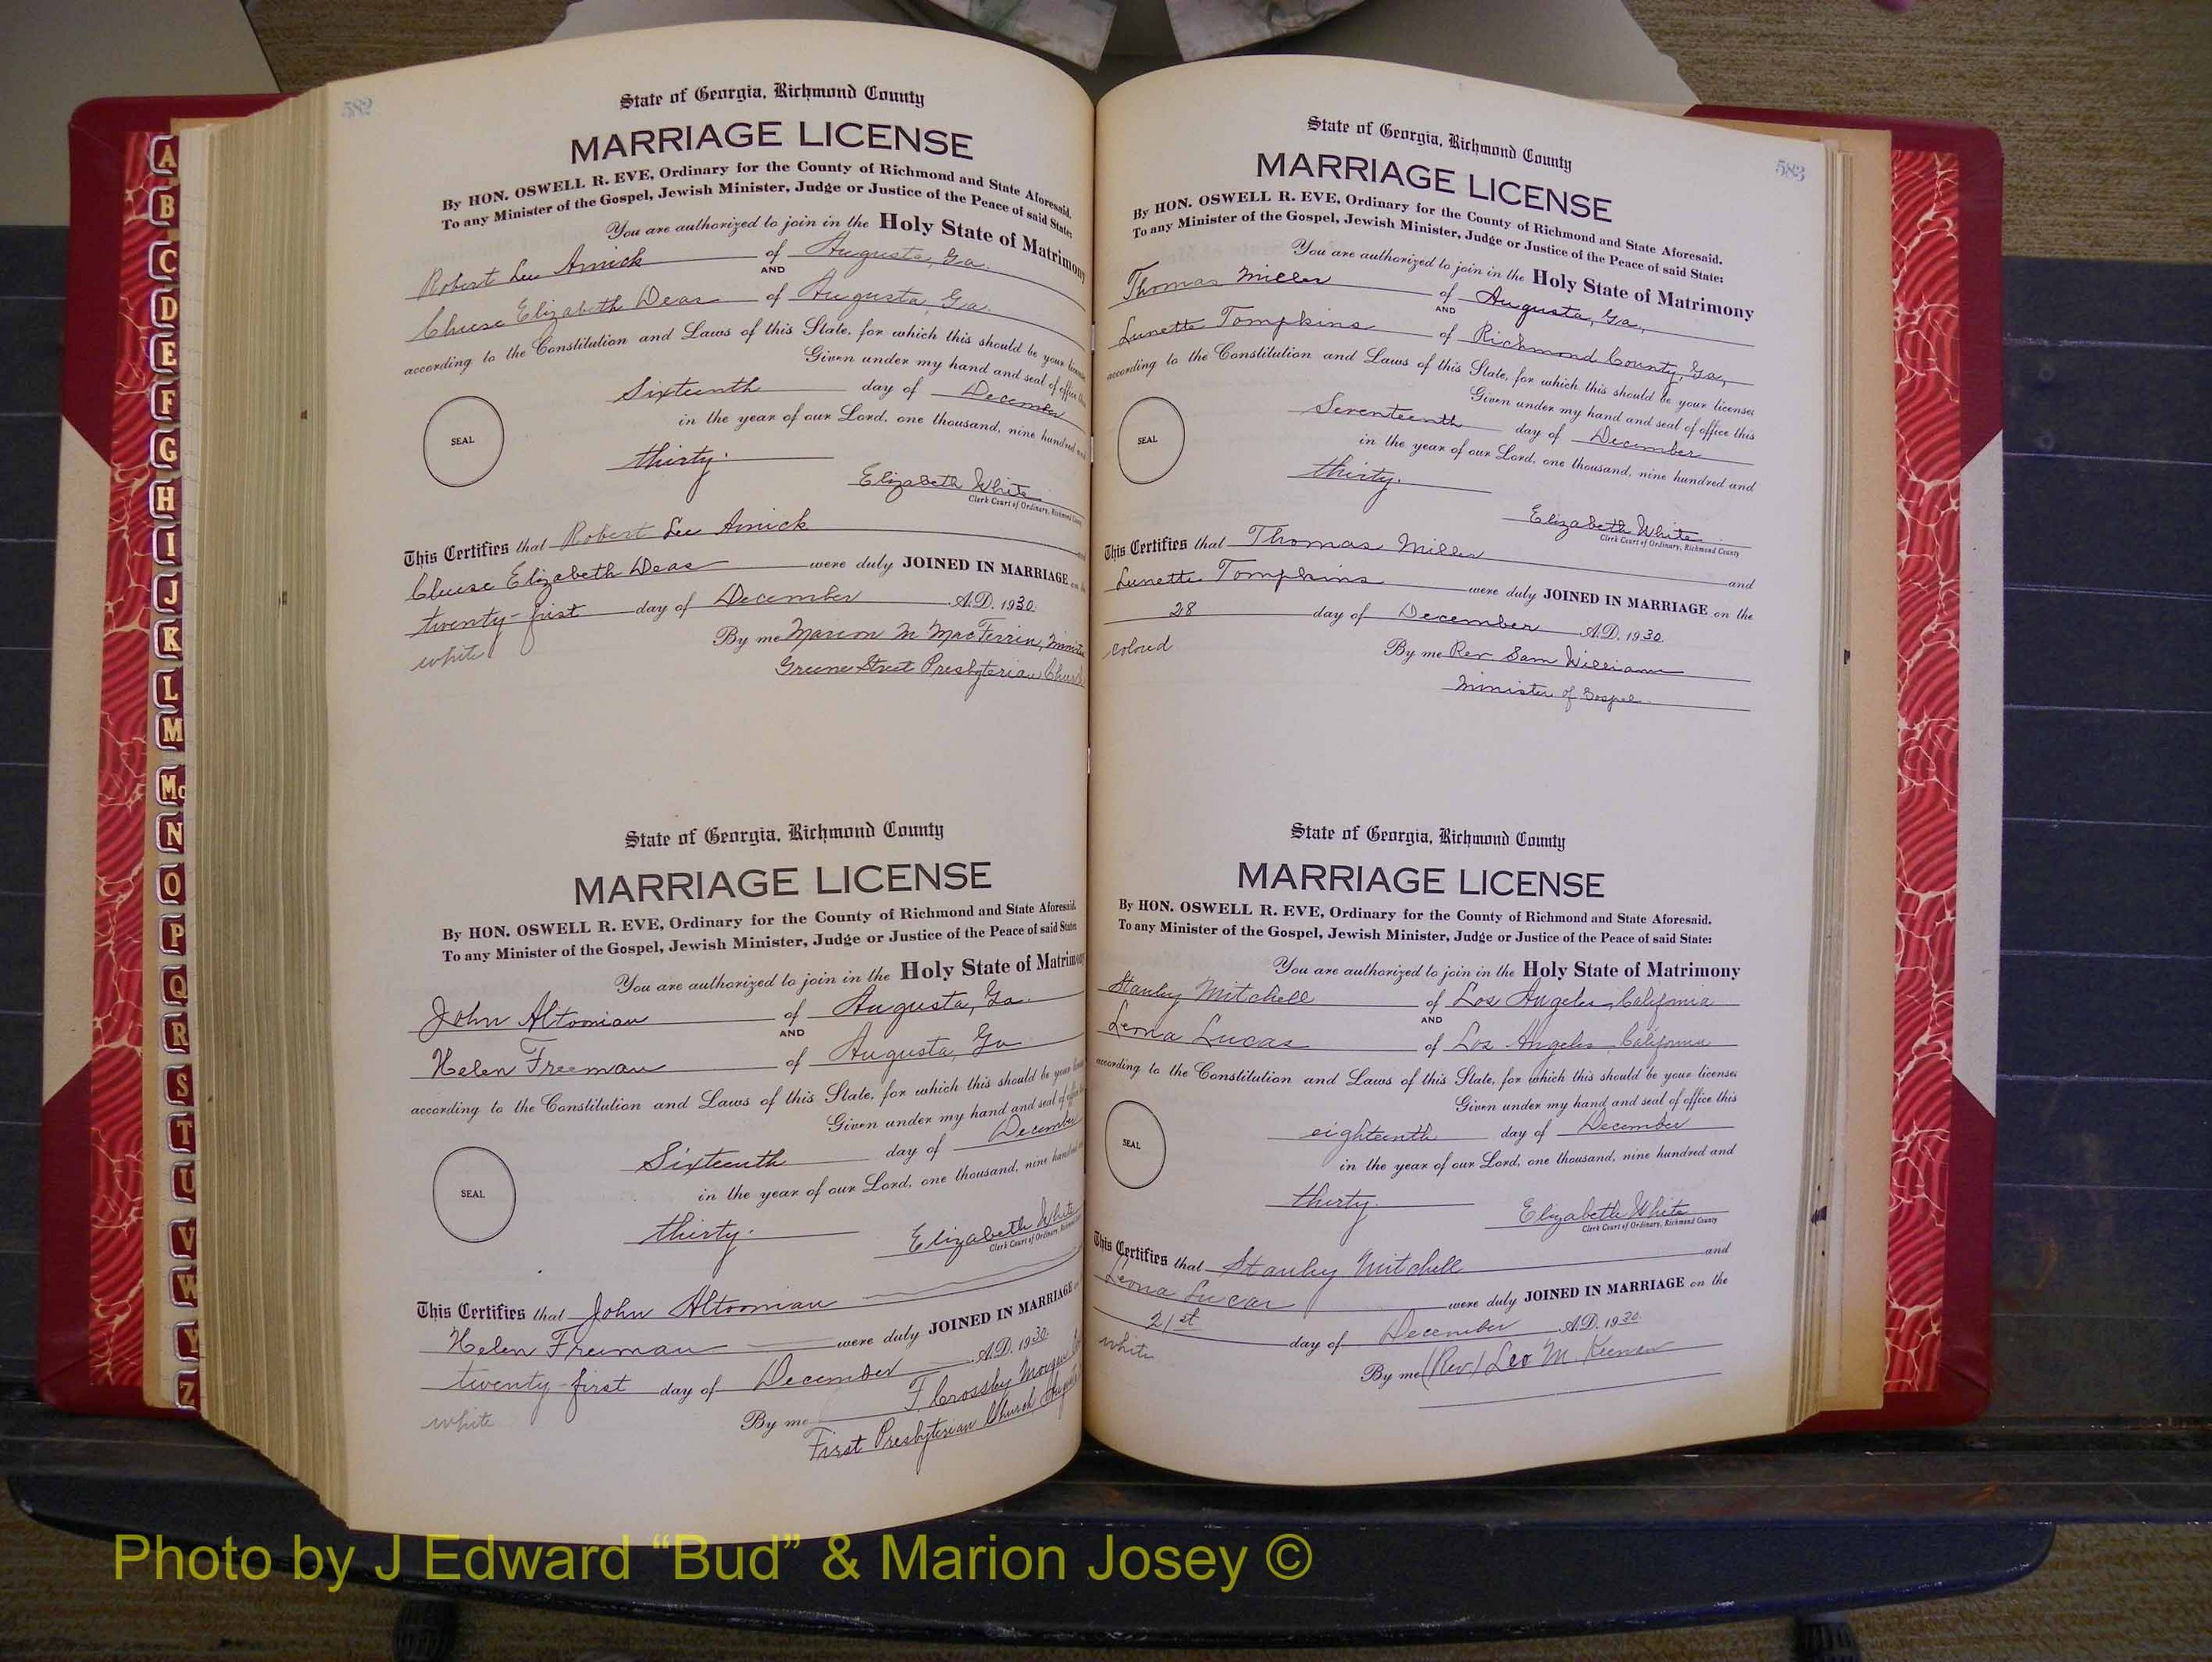 582
State of Georgia, Richmond County
MARRIAGE LICENSE
By HON. OSWELL R. EVE, Ordinary for the County of Richmond and State Aforesaid.
To any Minister of the Gospel, Jewish Minister, Judge or Justice of the Peace of said State:
You are authorized to join in the Holy State of Matrimony
Robert Lee Amick of Augusta, Ga.
AND
Elizabeth Deas of Augusta, Ga.
according to the Constitution and Laws of this State, for which this should be your license
Given under my hand and seal of office this
Sixteenth day of December
in the year of our Lord, one thousand, nine hundred and
thirty.
SEAL
Elizabeth White
Clerk Court of Ordinary, Richmond County
This Certifies that Robert Lee Amick and
Elizabeth Deas were duly JOINED IN MARRIAGE on the
twenty-first day of December A.D. 1930.
white
By me Marion M. MacFerrin, Minister
Greene Street Presbyterian Church
State of Georgia, Richmond County
MARRIAGE LICENSE
By HON. OSWELL R. EVE, Ordinary for the County of Richmond and State Aforesaid.
To any Minister of the Gospel, Jewish Minister, Judge or Justice of the Peace of said State:
You are authorized to join in the Holy State of Matrimony
John Altoonian of Augusta, Ga.
AND
Helen Freeman of Augusta, Ga
according to the Constitution and Laws of this State, for which this should be your license
Given under my hand and seal of office
Sixteenth day of December
in the year of our Lord, one thousand, nine hundred
thirty.
SEAL
Elizabeth White
Clerk Court of Ordinary, Richmond
This Certifies that John Altoonian
Helen Freeman were duly JOINED IN MARRIAGE
twenty-first day of December A.D. 1930.
white
By me F. Crossley Morgan
First Presbyterian Church
583
State of Georgia, Richmond County
MARRIAGE LICENSE
By HON. OSWELL R. EVE, Ordinary for the County of Richmond and State Aforesaid.
To any Minister of the Gospel, Jewish Minister, Judge or Justice of the Peace of said State:
You are authorized to join in the Holy State of Matrimony
Thomas Miller of Augusta, Ga,
AND
Lunette Tompkins of Richmond County, Ga,
according to the Constitution and Laws of this State, for which this should be your licenses
Given under my hand and seal of office this
Seventeenth day of December
in the year of our Lord, one thousand, nine hundred and
thirty.
SEAL
Elizabeth White
Clerk Court of Ordinary, Richmond County
This Certifies that Thomas Miller and
Lunette Tompkins were duly JOINED IN MARRIAGE on the
28 day of December A.D. 1930.
colored
By me Rev Sam Williams
Minister of Gospel
State of Georgia, Richmond County
MARRIAGE LICENSE
By HON. OSWELL R. EVE, Ordinary for the County of Richmond and State Aforesaid.
To any Minister of the Gospel, Jewish Minister, Judge or Justice of the Peace of said State:
You are authorized to join in the Holy State of Matrimony
Stanley Mitchell of Los Angeles, California
AND
Leona Lucas of Los Angeles, California
according to the Constitution and Laws of this State, for which this should be your licenses
Given under my hand and seal of office this
eighteenth day of December
in the year of our Lord, one thousand, nine hundred and
thirty.
SEAL
Elizabeth White
Clerk Court of Ordinary, Richmond County
This Certifies that Stanley Mitchell and
Leona Lucas were duly JOINED IN MARRIAGE on the
21st day of December A.D. 1930.
white
By me (Rev) Leo M. Keenan
A
B
C
D
E
F
G
H
I
J
K
L
M
Mc
N
O
P
Q
R
S
T
U
V
W
Y
Z
Photo by J Edward “Bud” & Marion Josey ©